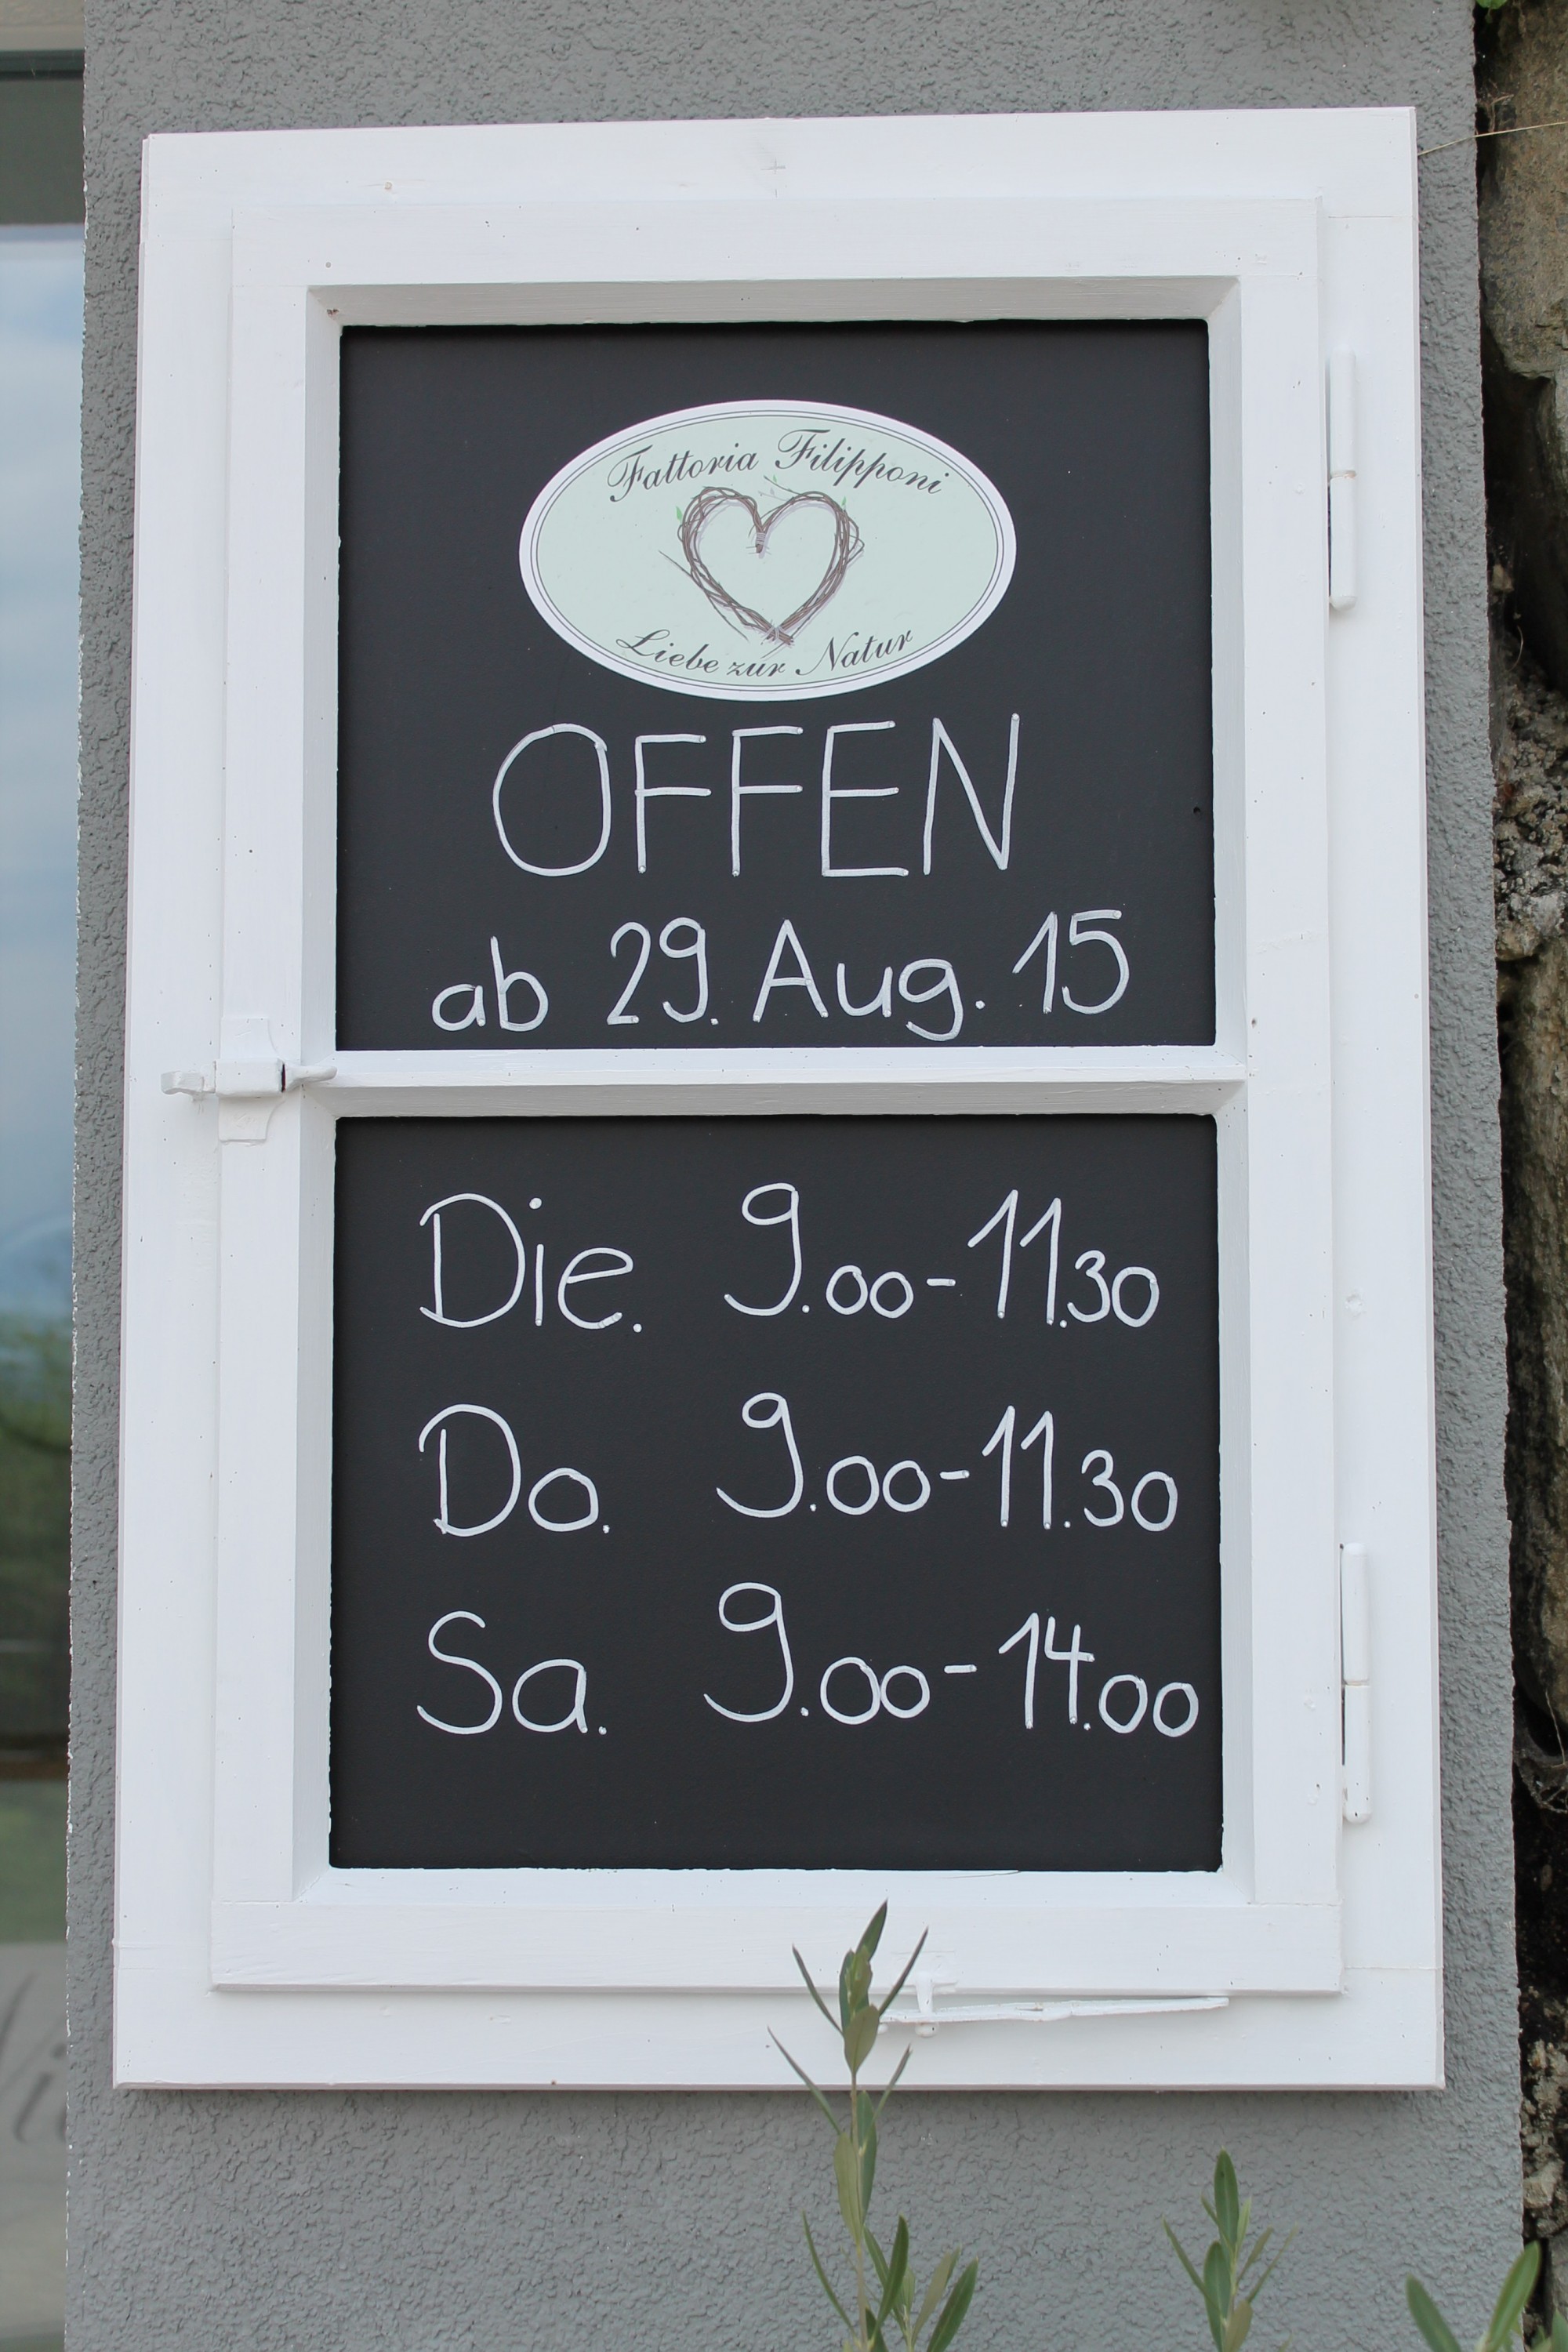 Fattoria Filipponi
Liebe zur Natur
OFFEN
ab 29. Aug. 15
Die. 9.00-11.30
Do. 9.00-11.30
Sa. 9.00-14.00